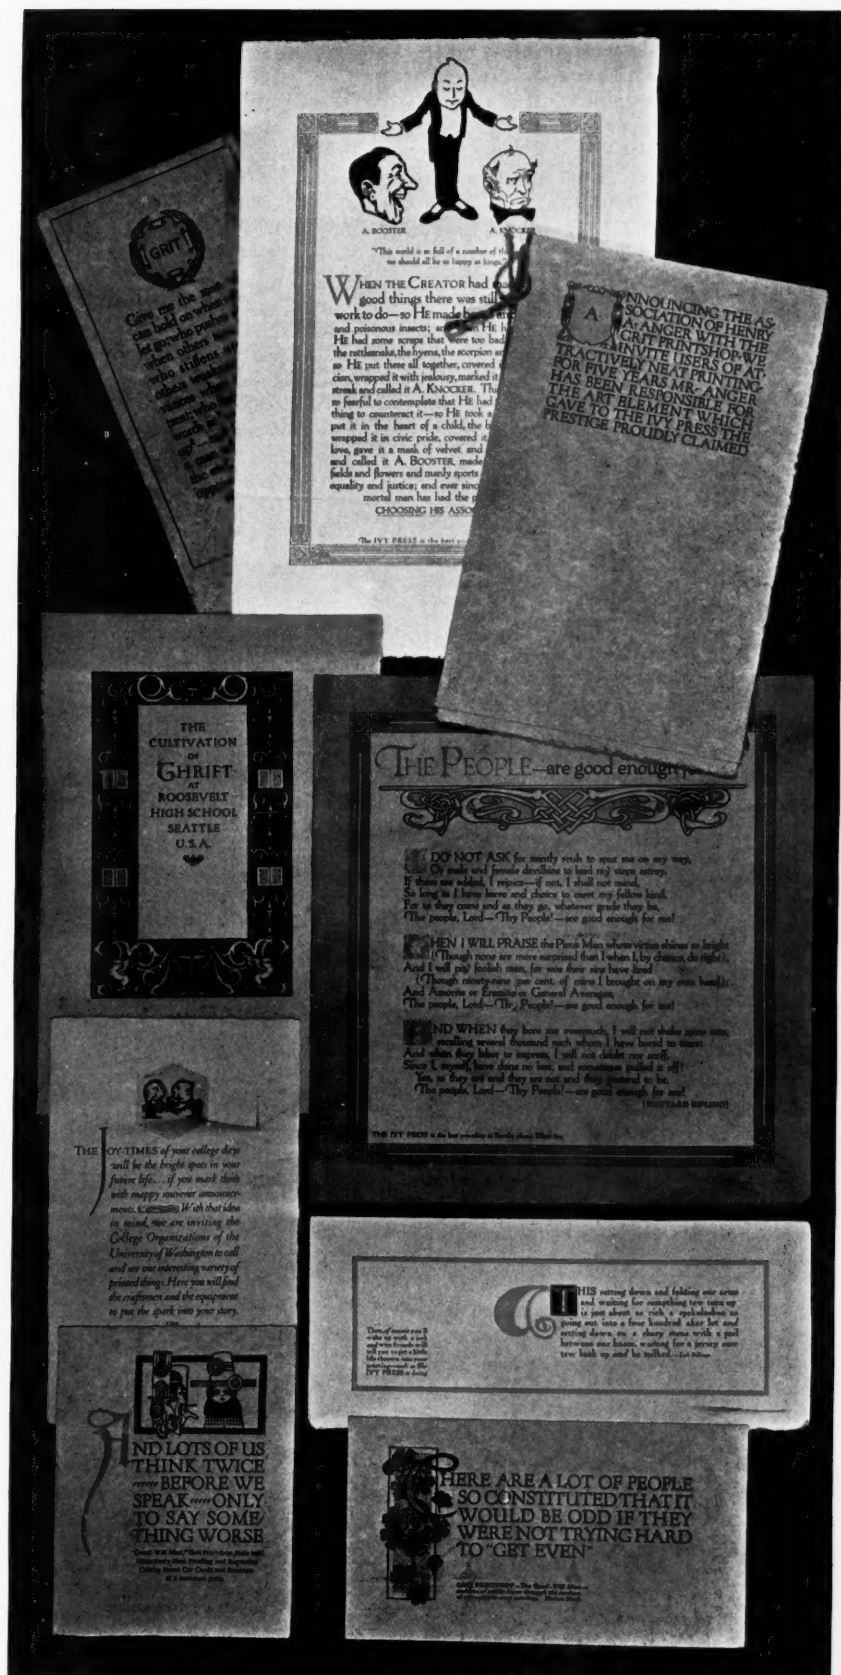 GRIT
Give me the
can hold on when
let go; who pushes
when others
who stiffens
A. BOOSTER
A. KNOCKER
"This world is so full of a number of
we should all be as happy as kings."
WHEN THE CREATOR had
good things there was still
work to do—so HE made
and poisonous insects;
HE had some scraps that were too bad
the rattlesnake, the hyena, the scorpion
so HE put these all together, covered
cion, wrapped it with jealousy, marked it
streak and called it A. KNOCKER.
so fearful to contemplate that HE had
thing to counteract it—so HE took a
put it in the heart of a child, the
wrapped it in civic pride, covered it
love, gave it a mask of velvet and
and called it A. BOOSTER, made
fields and flowers and manly sports
equality and justice; and ever since
mortal man has had the
CHOOSING HIS
The IVY PRESS is the best
ANNOUNCING THE AS-
SOCIATION OF HENRY
A. ANGER WITH THE
GRIT PRINTSHOP. WE
INVITE USERS OF AT-
TRACTIVELY NEAT PRINTING.
FOR FIVE YEARS MR. ANGER
HAS BEEN RESPONSIBLE FOR
THE ART ELEMENT WHICH
GAVE TO THE IVY PRESS THE
PRESTIGE PROUDLY CLAIMED
THE
CULTIVATION
OF
THRIFT
AT
ROOSEVELT
HIGH SCHOOL
SEATTLE
U.S.A.
THE PEOPLE—are good enough
I DO NOT ASK for saintly souls to spur me on my way,
Or male and female devilkins to lead my steps astray,
If these are added, I rejoice—if not, I shall not mind,
So long as I have leave and choice to meet my fellow kind.
For as they come and as they go, whatever grade they be,
The people, Lord—Thy People!—are good enough for me!
THEN I WILL PRAISE the Pious Man whose virtue shines so bright
(Though none are more surprised than I when I, by chance, do right),
And I will pity foolish men, for woe their sins have bred
(Though ninety-nine per cent. of mine I brought on my own head);
And Amorite or Eremite or General Averagee,
The people, Lord—Thy People!—are good enough for me!
AND WHEN they bore me overmuch, I will not shake mine ears,
recalling several thousand such whom I have bored to tears;
And when they labor to impress, I will not doubt nor scoff,
Since I, myself, have done no less, and sometimes pulled it off!
Yes, as they are and they are not and they pretend to be,
The people, Lord—Thy People!—are good enough for me!
[RUDYARD KIPLING]
THE IVY PRESS is the best
THE JOY-TIMES of your college days
will be the bright spots in your
future life... if you mark them
with snappy souvenir announce-
ments. With that idea
in mind, we are inviting the
College Organizations of the
University of Washington to call
and see our interesting variety of
printed things. Here you will find
the craftsmen and the equipment
to put the spark into your story.
Then, of course you'll
wake up with a
and wise friends will
tell you to get a little
life thrown into your
printing—such as the
IVY PRESS is doing
THIS setting down and folding our arms
and waiting for sumpthing tew turn up
is just about az rich a spekulashun az
going out into a four hundred aker lot and
setting down on a sharp stone with a pail
between our knees, waiting for a jersey cow
tew back up and be milked.
AND LOTS OF US
THINK TWICE
BEFORE WE
SPEAK ONLY
TO SAY SOME-
THING WORSE
THERE ARE A LOT OF PEOPLE
SO CONSTITUTED THAT IT
WOULD BE ODD IF THEY
WERE NOT TRYING HARD
TO "GET EVEN"